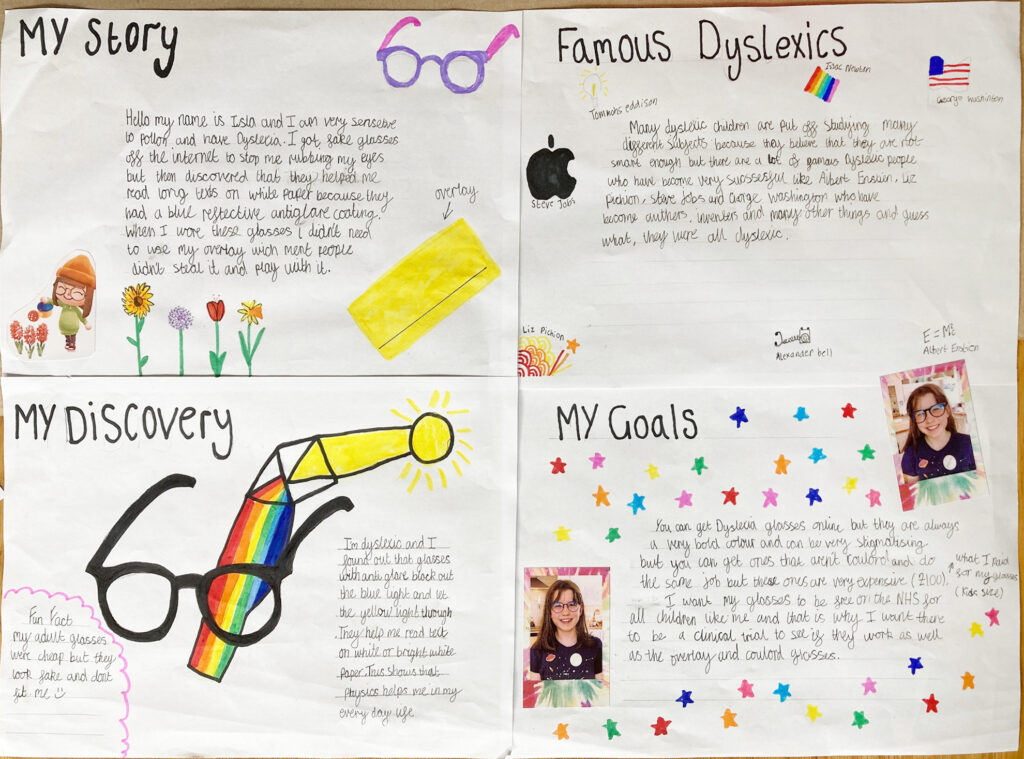 MY Story
Hello my name is Isla and I am very sensetive
to pollon and have Dyslecia. I got fake glasses
off the internet to stop me rubbing my eyes
but then discovered that they helped me
read long texts on white paper because they
had a blue reflective antiglare coating.
When I wore these glasses i didn't need
to use my overlay wich ment people
didn't steal it and play with it.
overlay
Famous Dyslexics
Tommohs eddison
Issac Newton
George Washinton
Steve Jobs
Many dyslexic children are put off studying many
different subjects because they believe that they are not
smart enough but there are a lot of famous Dyslexic people
who have become very sucsessful like Albert Enstien, Liz
Pichion, Steve Jobs and George Washington who have
become authers, inventers and many other things and guess
what, they were all dyslexic.
Liz Pichion
Alexander bell
E = Mc²
Albert Enstien
MY Discovery
I'm dyslexic and I
found out that glasses
with anti glare block out
the blue light and let
the yellow light through
They help me read text
on white or bright white
paper. This shows that
physics helps me in my
every day life
Fun Fact
my adult glasses
were cheap but they
look fake and dont
fit me
MY Goals
You can get Dyslexia glasses online but they are always
a very bold colour and can be very stigmatising
but you can get ones that aren't coulord and do
the same job but these ones are very expensive (£100).
what I paid
for my glasses
(Kids size)
I want my glasses to be free on the NHS for
all children like me and that is why I want there
to be a clinical trial to see if they work as well
as the overlay and coulord glasses.